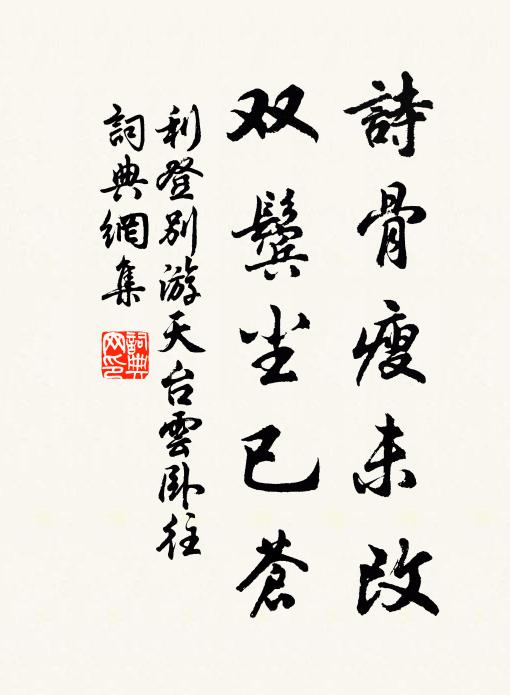 詩骨瘦未改
双鬓尘已蒼
利登别游天台雲卧往
詞典網集
詞典
网印